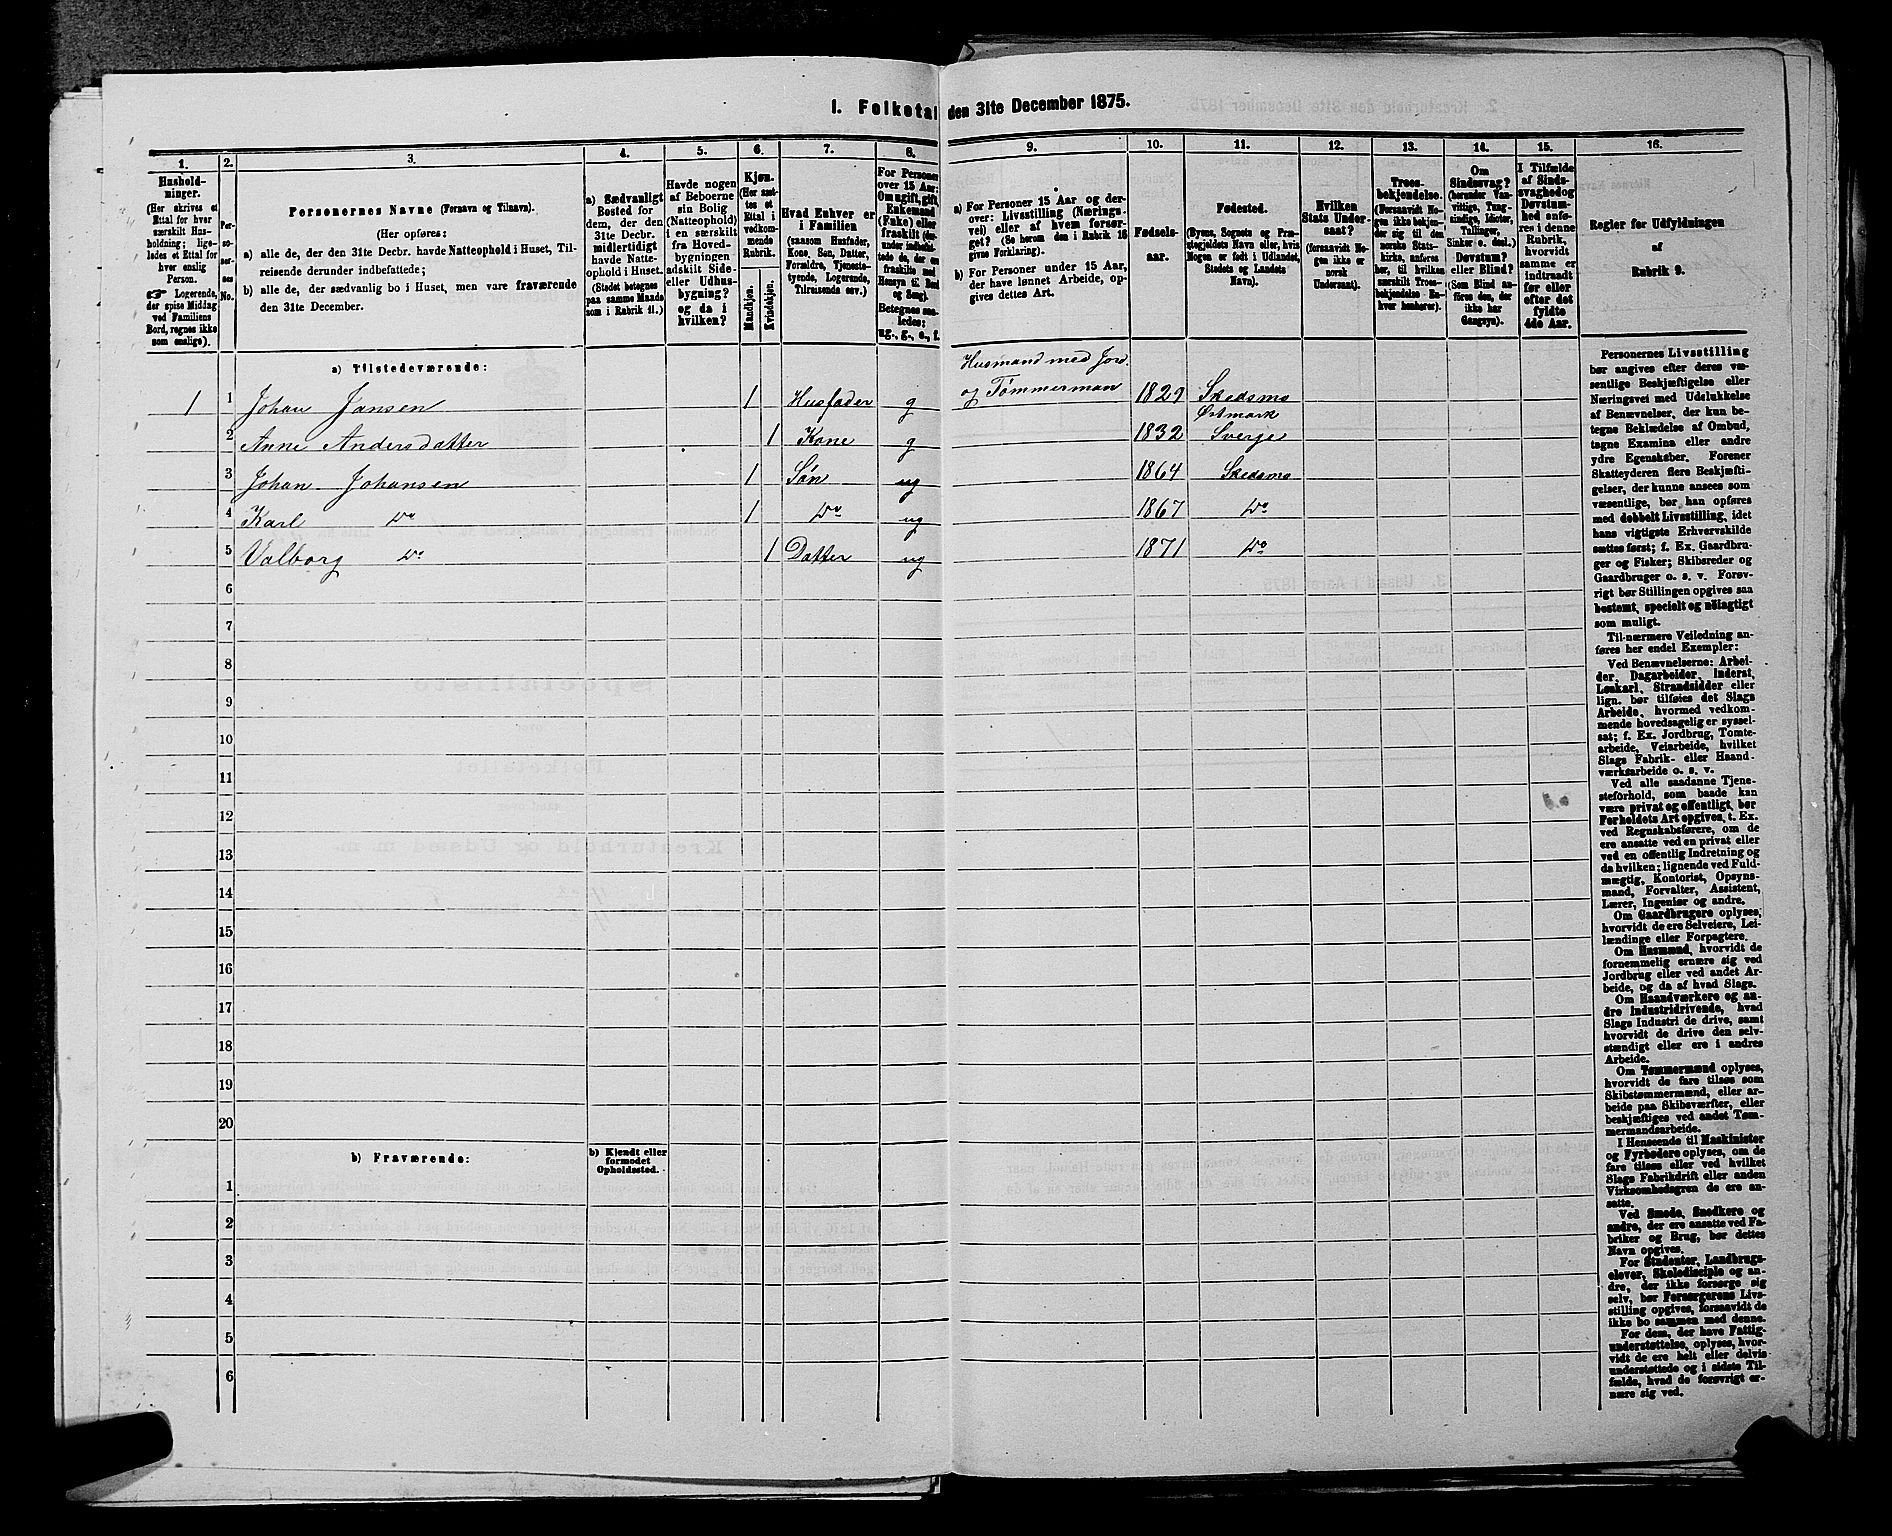 I. Folketal den 31te December 1875.
1. 2. 3. 4. 5. 6. 7. 8. 9. 10. 11. 12. 13. 14. 15. 16.
Hushold-
ninger.
(Her skrives et
Ettal for hver
særskilt Hus-
holdning; lige-
ledes et Ettal for
hver enslig
Person.
☞ Logerende,
der spise Middag
ved Familiens
Bord, regnes ikke
som enslige).
Per-
so-
ner-
nes
No.
Personernes Navne (Fornavn og Tilnavn).
(Her opføres:
a) alle de, der den 31te Decbr. havde Natteophold i Huset, Til-
reisende derunder indbefattede;
b) alle de, der sædvanlig bo i Huset, men vare fraværende
den 31te December.
a) Sædvanligt
Bosted for
dem, der den
31te Decbr.
midlertidigt
havde Natte-
ophold i Huset.
(Stedet betegnes
paa samme Maade
som i Rubrik 11.)
Havde nogen
af Beboerne
sin Bolig
(Natteophold)
i en særskilt
fra Hoved-
bygningen
adskilt Side-
eller Udhus-
bygning?
og da i
hvilken?
Kjøn.
(Her sæt-
tes et
Ettal i
vedkom-
mende
Rubrik.
Mandkjøn.
Kvindekjøn.
Hvad Enhver er
i Familien
(saasom Husfader,
Kone, Søn, Datter,
Forældre, Tjeneste-
tyende, Logerende,
Tilreisende osv.)
For Personer
over 15 Aar:
Om ugift, gift,
Enkemand
(Enke) eller
fraskilt
Betegnes saa-
ledes:
ug., g., e., f.
a) For Personer 15 Aar og der-
over: Livsstilling (Nærings-
vei) eller af hvem forsør-
get? (Se herom den i Rubrik 16
givne Forklaring).
b) For Personer under 15 Aar,
der have lønnet Arbeide, op-
gives dettes Art.
Fødsels-
aar.
Fødested.
(Byens, Sognets og Præ-
stegjeldets Navn eller, hvis
Nogen er født i Udlandet,
Stedets og Landets
Navn).
Hvilken
Stats Under-
saat?
(forsaavidt No-
gen ikke er
norsk
Undersaat).
Troes-
bekjendelse.
(Forsaavidt No-
gen ikke bekjen-
der sig til den
norske Stats-
kirke, anføres
her, til hvilken
særskilt Troes-
bekjendelse En-
hver henhører).
Om
Sindssvag?
(herunder Van-
vittige, Tung-
sindige, Idioter,
Tullinger,
Sinker o. desl.)
Døvstum?
eller Blind?
(Som Blind an-
føres den, der
ikke har
Gangsyn).
I Tilfælde
af Sinds-
svaghed og
Døvstum-
hed anfø-
res i denne
Rubrik,
hvorvidt
samme er
indtraadt
før eller
efter det
fyldte
4de Aar.
Regler for Udfyldningen
af
Rubrik 9.
a) Tilstedeværende:
Husmand med Jord.
1 1 Johan Jansen 1 Husfader g og Tømmerman 1829 Skedsmo
Østmark
2 Anne Andersdatter 1 Kone g 1832 Sverje
3 Johan Johansen 1 Søn ug 1864 Skedsmo
4 Karl Do 1 Do ug 1867 Do
5 Valborg Do 1 Datter ug 1871 Do
6
7
8
9
10
11
12
13
14
15
16
17
18
19
20
b) Fraværende:
b) Kjendt eller
formodet
Opholdssted.
1
2
3
4
5
6
Personernes Livsstilling
bør angives efter deres væ-
sentlige Beskjæftigelse eller
Næringsvei med Udelukkelse
af Benævnelser, der kun be-
tegne Beklædelse af Ombud,
tagne Examina eller andre
ydre Egenskaber. Forener
Skatteyderen flere Beskjæfti-
gelser, der kunne ansees som
væsentlige, bør han opføres
med dobbelt Livsstilling, idet
hans vigtigste Erhvervskilde
sættes først; f. Ex. Gaardbru-
ger og Fisker; Skibsreder og
Gaardbruger o. s. v. Forøv-
rigt bør Stillingen opgives saa
bestemt, specielt og nøiagtigt
som muligt.
Til nærmere Veiledning an-
føres her endel Exempler:
Ved Benævnelserne: Arbei-
der, Dagarbeider, Inderst,
Løskarl, Strandsidder eller
lign. bør tilføies det Slags
Arbeide, hvormed vedkom-
mende hovedsagelig er syssel-
sat; f. Ex. Jordbrug, Tomte-
arbeide, Veiarbeide, hvilket
Slags Fabrik- eller Haand-
værksarbeide o. s. v.
Ved alle saadanne Tjene-
steforhold, som baade kan
være privat og offentligt, bør
Forholdets Art opgives, t. Ex.
ved Regnskabsførere, om de
ere ansatte ved en privat eller
ved en offentlig Indretning og
da hvilken; lignende ved Fuld-
mægtig, Kontorist, Opsyns-
mand, Forvalter, Assistent,
Lærer, Ingeniør og andre.
Om Gaardbrugere oplyses,
hvorvidt de ere Selveiere, Lei-
lændinge eller Forpagtere.
Om Husmænd, hvorvidt de
fornemmelig ernære sig ved
Jordbrug eller ved andet Ar-
beide, og da af hvad Slags.
Om Haandværkere og an-
dre Industridrivende, hvad
Slags Industri de drive, samt
hvorvidt de drive den selv-
stændigt eller ere i andres
Arbeide.
Om Tømmermænd oplyses,
hvorvidt de fare tilsøs som
Skibstømmermænd, eller ar-
beide paa Skibsværfter, eller
beskjæftiges ved andet Tøm-
mermandsarbeide.
I Henseende til Maskinister
og Fyrbødere oplyses, om de
fare tilsøs eller ved hvilket
Slags Fabrikdrift eller anden
Virksomhedsgren de ere an-
satte.
Ved Smede, Snedkere og
andre, der ere ansatte ved Fa-
briker og Brug, bør dettes
Navn opgives.
For Studenter, Landbrugs-
elever, Skoledisciple og an-
dre, der ikke forsørge sig
selv, bør Forsørgerens Livs-
stilling opgives, forsaavidt de
ikke bo sammen med denne.
For dem, der have Fattig-
understøttelse, oplyses, hvor-
vidt de ere helt eller delvis
understøttede og i sidste Til-
fælde, hvad de forøvrigt er-
nære sig ved.